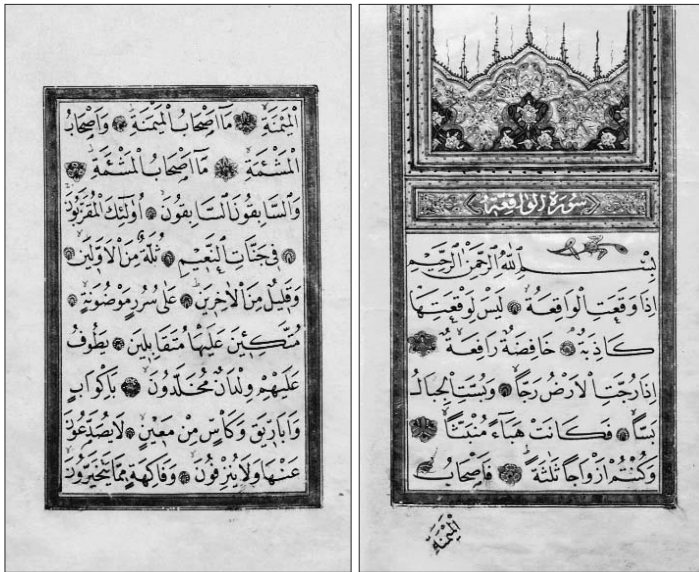 سُورَةُ الْوَاقِعَةِ
بِسْمِ اللّٰهِ الرَّحْمٰنِ الرَّحِيمِ
اِذَا وَقَعَتِ الْوَاقِعَةُ لَيْسَ لِوَقْعَتِهَا
كَاذِبَةٌ خَافِضَةٌ رَافِعَةٌ
اِذَا رُجَّتِ الْاَرْضُ رَجًّا وَبُسَّتِ الْجِبَالُ
بَسًّا فَكَانَتْ هَبَاءً مُنْبَثًّا
وَكُنْتُمْ اَزْوَاجًا ثَلٰثَةً فَاَصْحَابُ
الْمَيْمَنَةِ
الْمَيْمَنَةِ مَا اَصْحَابُ الْمَيْمَنَةِ وَاَصْحَابُ
الْمَشْئَمَةِ مَا اَصْحَابُ الْمَشْئَمَةِ
وَالسَّابِقُونَ السَّابِقُونَ اُولٰئِكَ الْمُقَرَّبُونَ
فِي جَنَّاتِ النَّعِيمِ ثُلَّةٌ مِنَ الْاَوَّلِينَ
وَقَلِيلٌ مِنَ الْاٰخِرِينَ عَلٰى سُرُرٍ مَوْضُونَةٍ
مُتَّكِئِينَ عَلَيْهَا مُتَقَابِلِينَ يَطُوفُ
عَلَيْهِمْ وِلْدَانٌ مُخَلَّدُونَ بِاَكْوَابٍ
وَاَبَارِيقَ وَكَاْسٍ مِنْ مَعِينٍ لَا يُصَدَّعُونَ
عَنْهَا وَلَا يُنْزِفُونَ وَفَاكِهَةٍ مِمَّا يَتَخَيَّرُونَ